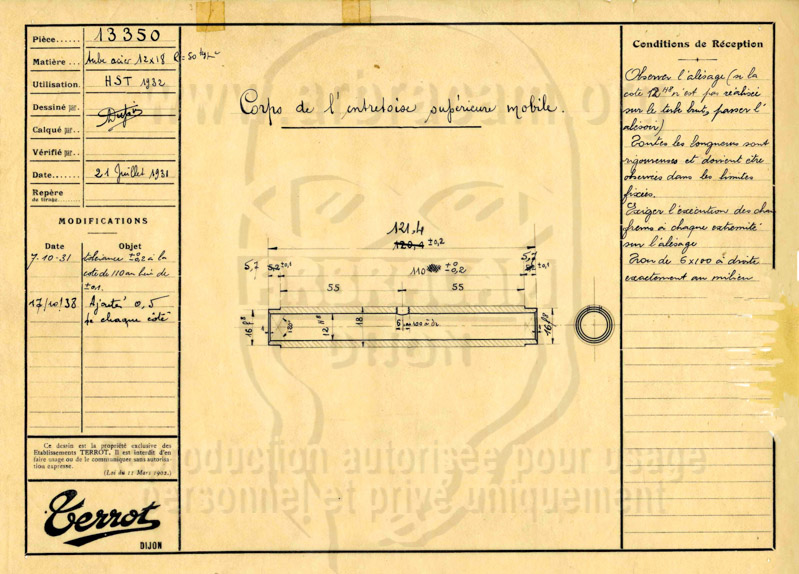 Pièce...... 13350
Matière... Tube acier 12x18 R=50
Utilisation. HST 1932
Dessiné par.
Calqué par..
Vérifié par..
Date....... 21 Juillet 1931
Repère
de tirage
MODIFICATIONS
Date Objet
7-10-31 tolérance ±0,2 à la
cote de 110 au lieu de
±0,1.
17/10/38 Ajouté 0,5
de chaque côté
Ce dessin est la propriété exclusive des
Etablissements TERROT. Il est interdit d'en
faire usage ou de le communiquer sans autorisa-
tion expresse.
(Loi du 11 Mars 1902.)
Terrot
DIJON
Corps de l'entretoise supérieure mobile.
121,4
120,4 ±0,2
5,7 5,2 ±0,1 110 ±0,2 5,7 ±0,1
55 55
16 f8 120° 12 H8 18 6 x100 à Dr 16 f8
Conditions de Réception
Observer l'alésage (si la
cote 12 H8 n'est pas réalisée
sur le tube brut, passer l'
alésoir)
Toutes les longueurs sont
rigoureuses et doivent être
observées dans les limites
fixées.
Exiger l'exécution des chan
freins à chaque extrémité
sur l'alésage
Trou de 6x100 à droite
exactement au milieu
DIJON
Reproduction autorisée pour usage
personnel et privé uniquement